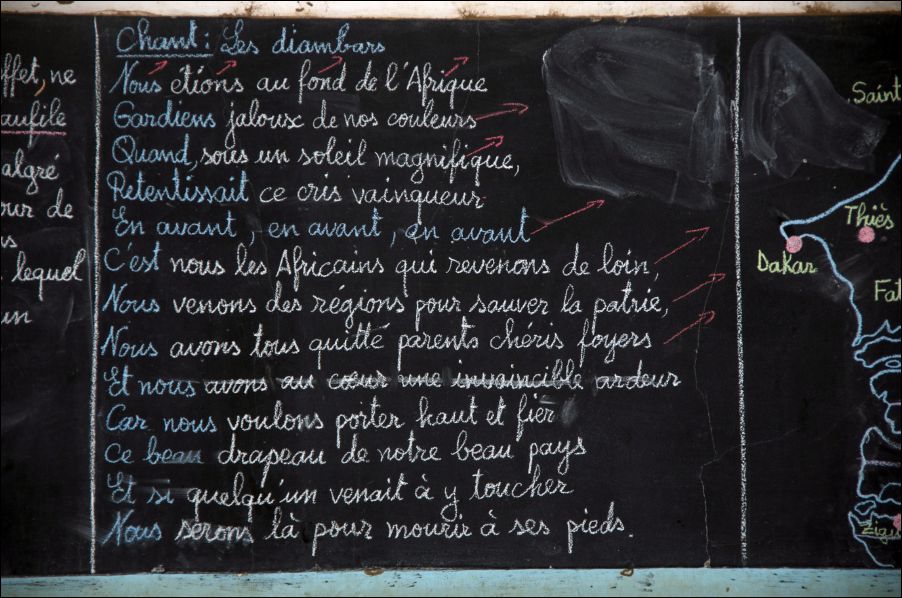 ffet, ne
aufile
algré
our de
ns
lequel
un
Chant: Les diambars
Nous étions au fond de l'Afrique
Gardiens jaloux de nos couleurs
Quand, sous un soleil magnifique,
Retentissait ce cris vainqueur
En avant, en avant, en avant
C'est nous les Africains qui revenons de loin,
Nous venons des régions pour sauver la patrie,
Nous avons tous quitté parents chéris foyers
Et nous avons au cœur une invaincible ardeur
Car nous voulons porter haut et fier
Ce beau drapeau de notre beau pays
Et si quelqu'un venait à y toucher
Nous serons là pour mourir à ses pieds.
Saint
Thiès
Dakar
Fat
Zigi